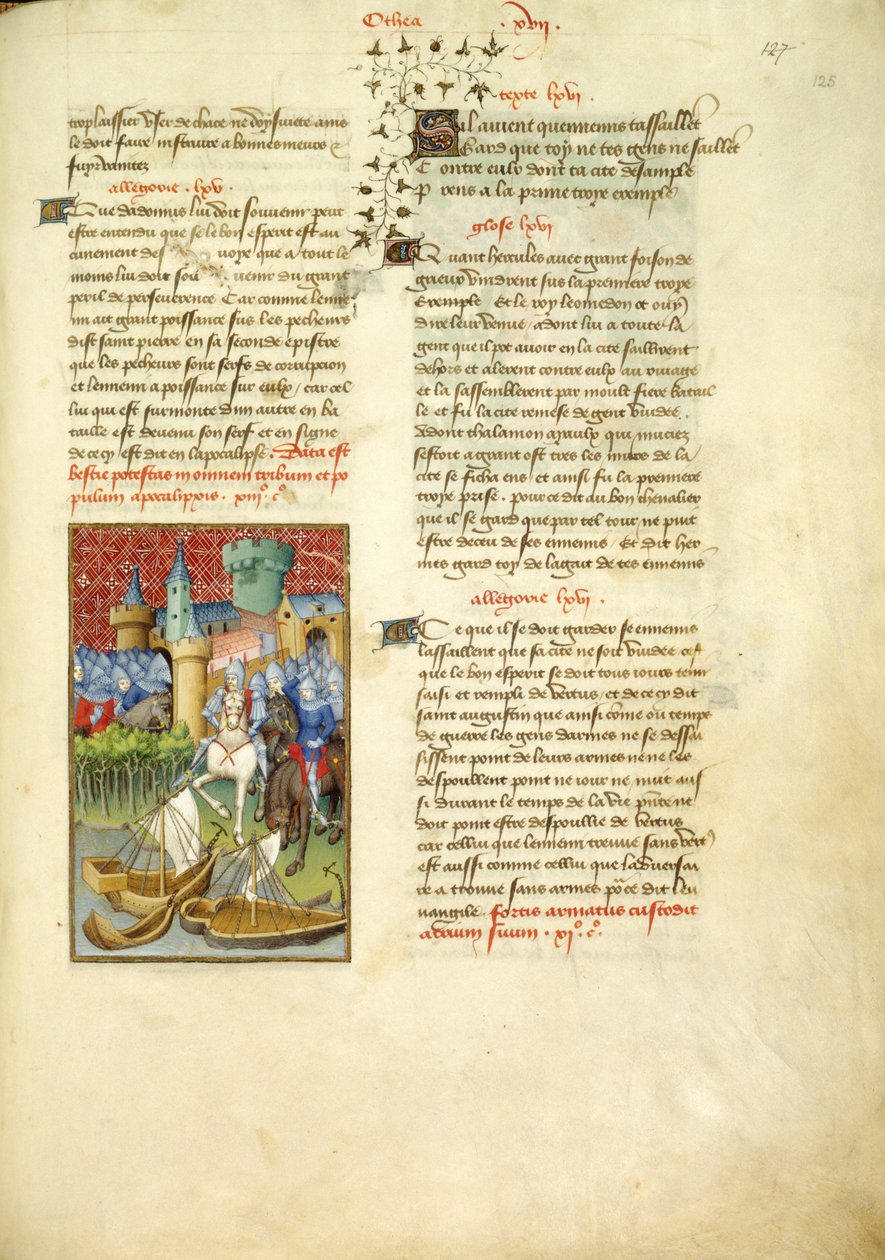 Othea
. xvij .
127
125
trop laissier user de chace ne doysivete ains
le doit faire instruire a bonnes meurs &
fuyr vanitez
allegorie . lxv .
Que dadonnis lui doit souvenir peut
estre entendu que se le bon esperit est au
cunement des voye que a tout le
moins lui doit souvenir du grant
peril de perseverence Car comme lenne
mi ait grant poissance sus les pecheurs
dist saint pierre en sa seconde epistre
que les pecheurs sont serfs de corrupcion
et lennemi a poissance sur eulx / car cel
lui qui est surmonte dun autre en ba
taille est devenu son serf et en signe
de ce cy est dit en lapocalipse . Data est
bestie potestas in omnem tribum et po
pulum apocalipxis . xiij.º c.º
texte lxvj .
Sil avient quennemis tassaillet
Gard que toy ne tes gens ne saillet
Contre eulx dont ta cite desemple
Prens a la prime troye exemple
glose lxvj
Quant hercules avec grant foison de
grieux vindrent sus la premiere troye
Exemple Et le roy leomedon ot ouy
dire leur venue / adont lui a toute la
gent que il pot avoir en la cite saillirent
dehors et alerent contre eulx au rivage
et la sassemblerent par moult fiere batail
le et fu la cite remese de gent vuidee .
Adont thalamon ajaulx qui muciez
sestoit a grant ost tres les murs de la
cite se ficha ens / et ainsi fu la premiere
troye prise . pour ce dit au bon chevalier
que il se gard que par tel tour ne puit
estre deceu de ses ennemis / Et dit her
mes gard toy de lagait de tes ennemis
allegorie lxvj .
Ce que il se doit garder se ennemis
lassaillent que sa cite ne soit vuidee cest
que le bon esperit se doit tous iours tenir
saisi et rempli de vertus / et de ce cy dit
saint augustin que ainsi come ou temps
de guerre les gens darmes ne se dessai
sissent point de leurs armes ne ne les
despoullent point ne iour ne nuit aus
si durant le temps de la vie pnte ne
doit point estre despoullie de vertus
car cellui que lennemi treuve sans vert
est aussi comme cellui que ladversai
re a trouve sans armes po ce dit leu
vangile . fortis armatus custodit
atrium suum . xj.º c.º